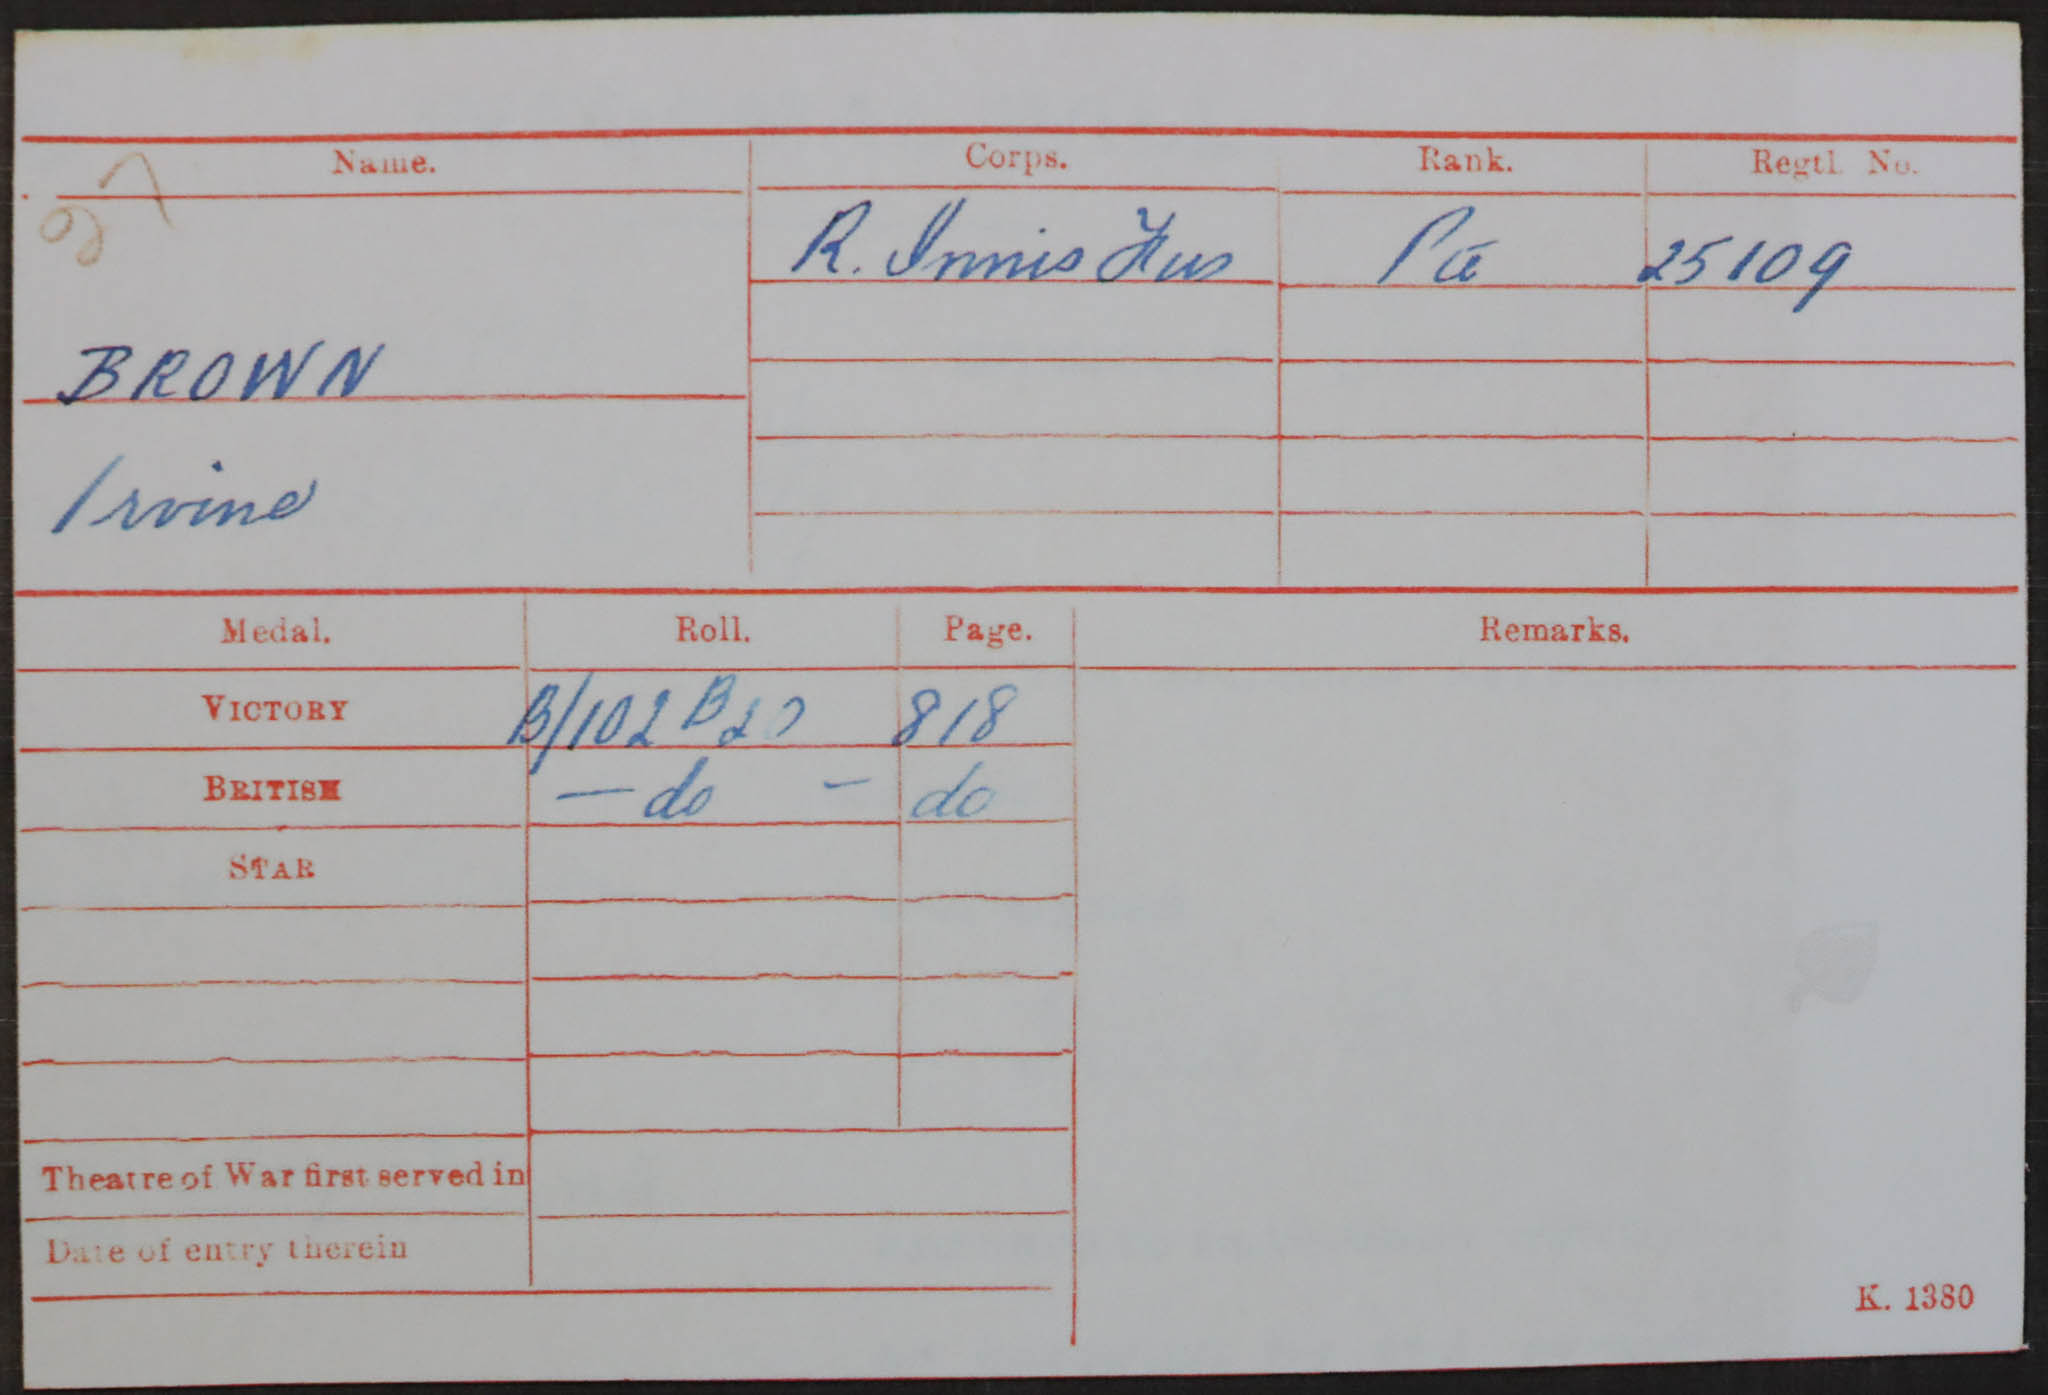 Name. Corps. Rank. Regtl. No.
R. Innis Fus Pte 25109
BROWN
Irvine
Medal. Roll. Page. Remarks.
VICTORY B/102 B20 818
BRITISH — do - do
STAR
Theatre of War first served in
Date of entry therein
K. 1380